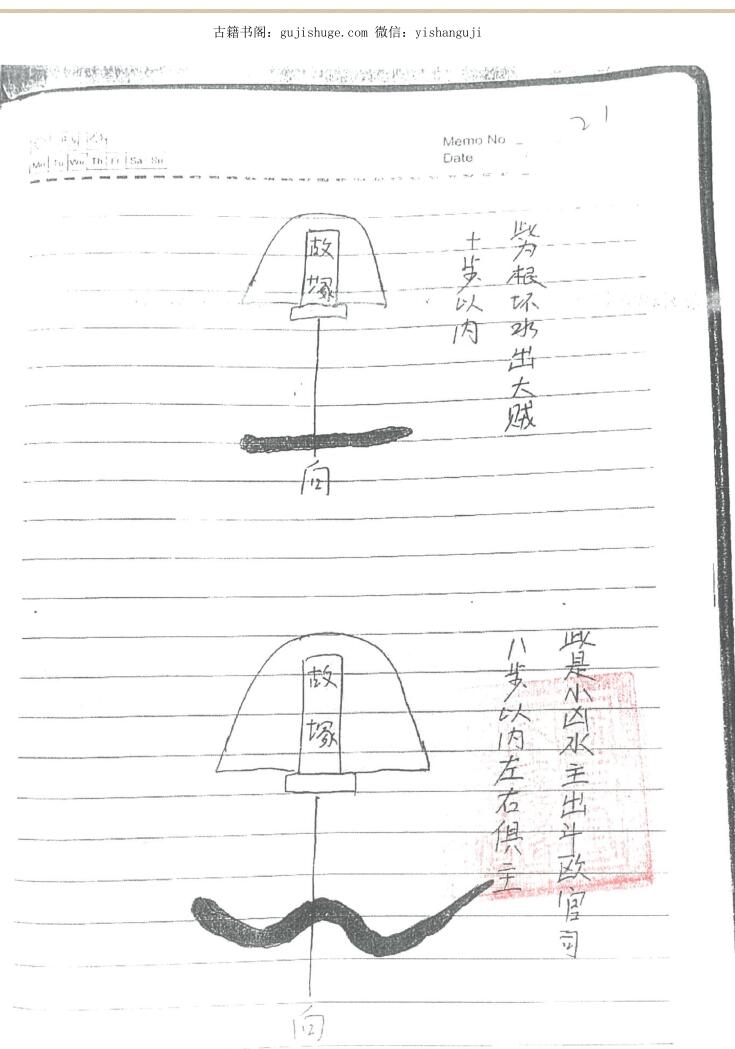 古籍书阁：gujishuge.com 微信：yishanguji
21
Memo No
Date
Mo Tu We Th Fr Sa Su
此为根坏水出大贼
十步以内
故塚
向
此是小凶水主出斗欧官司
八步以内左右俱主
故塚
向